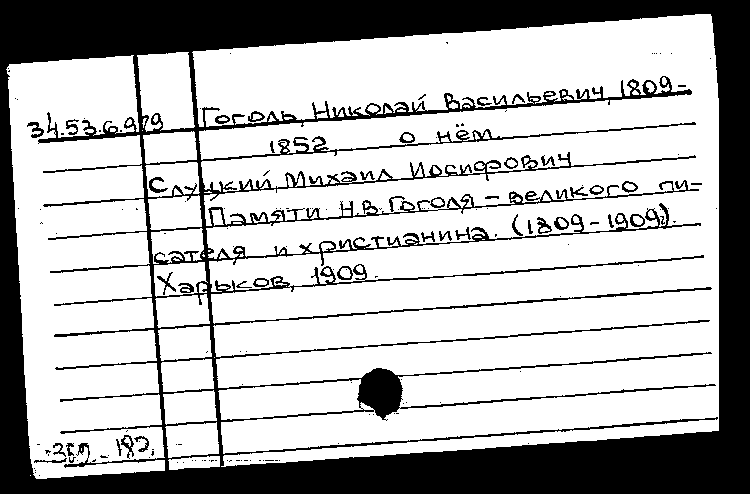 34.53.6.929 Гоголь, Николай Васильевич, 1809-
1852, о нём.
Слуцкий, Михаил Иосифович
Памяти Н.В.Гоголя - великого пи-
сателя и христианина. (1809-1909).
Харьков, 1909.